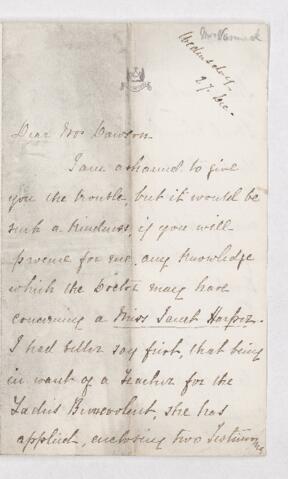 Wednesday.
27. Dec.
Dear Mrs Dawson.
I am ashamed to give
you the trouble, but it would be
such a kindness, if you will
procure for me, any knowledge
which the Doctor may have
concerning a Miss Janet
I had better say first, that being
in want of a Teacher for the
Ladies Benevolent, she has
applied, enclosing two